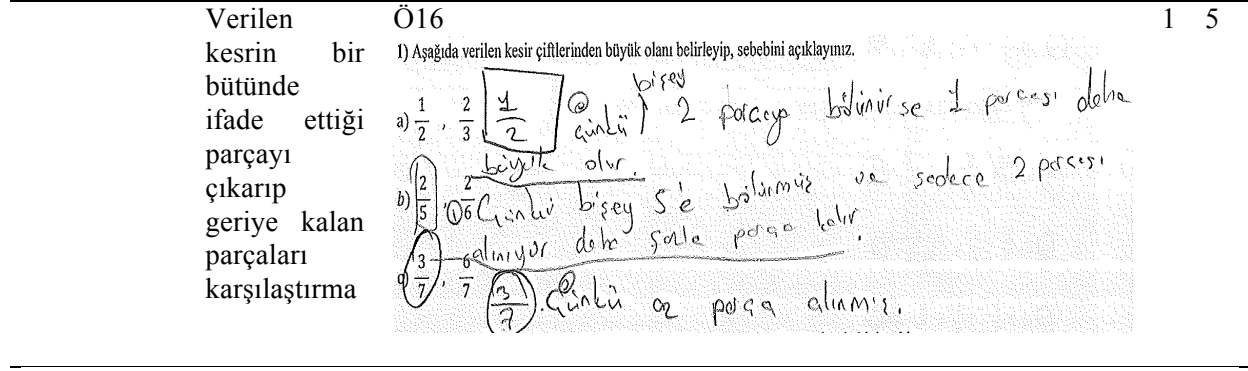 Verilen
kesrin bir
bütünde
ifade ettiği
parçayı
çıkarıp
geriye kalan
parçaları
karşılaştırma
Ö16
1 5
1) Aşağıda verilen kesir çiftlerinden büyük olanı belirleyip, sebebini açıklayınız.
bişey
a) 1/2 , 2/3 1/2 Çünkü 2 parçaya bölünürse 1 parçası daha
büyük olur.
b) 2/5 , 2/6 Çünkü bişey 5'e bölünmüş ve sadece 2 parçası
alınıyor daha fazla parça kalır.
c) 3/7 , 6/7 3/7. Çünkü az parça alınmış.